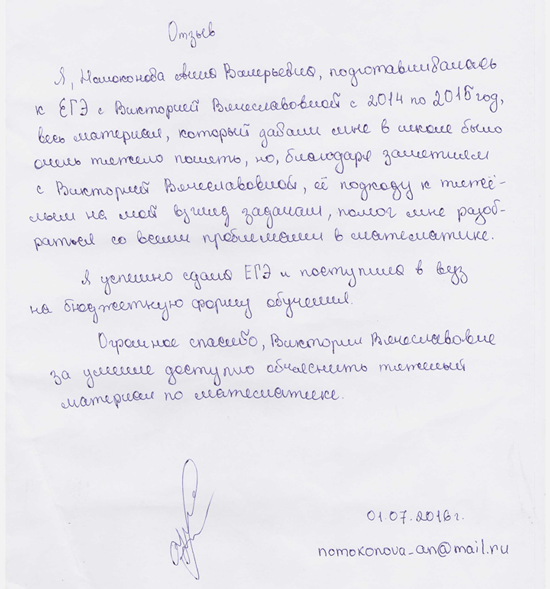 Отзыв
Я, Номоконова Анна Валерьевна, подготавливалась
к ЕГЭ с Викторией Вячеславовной с 2014 по 2015 год,
весь материал, который давали мне в школе было
очень тяжело понять, но, благодаря занятиям
с Викторией Вячеславовной, её подходу к тяжё-
лым на мой взгляд задачам, помог мне разоб-
раться со всеми проблемами в математике.
Я успешно сдала ЕГЭ и поступила в вуз
на бюджетную форму обучения.
Огромное спасибо, Виктории Вячеславовне
за умение доступно объяснить тяжелый
материал по математике.
01.07.2016г.
nomokonova_an@mail.ru